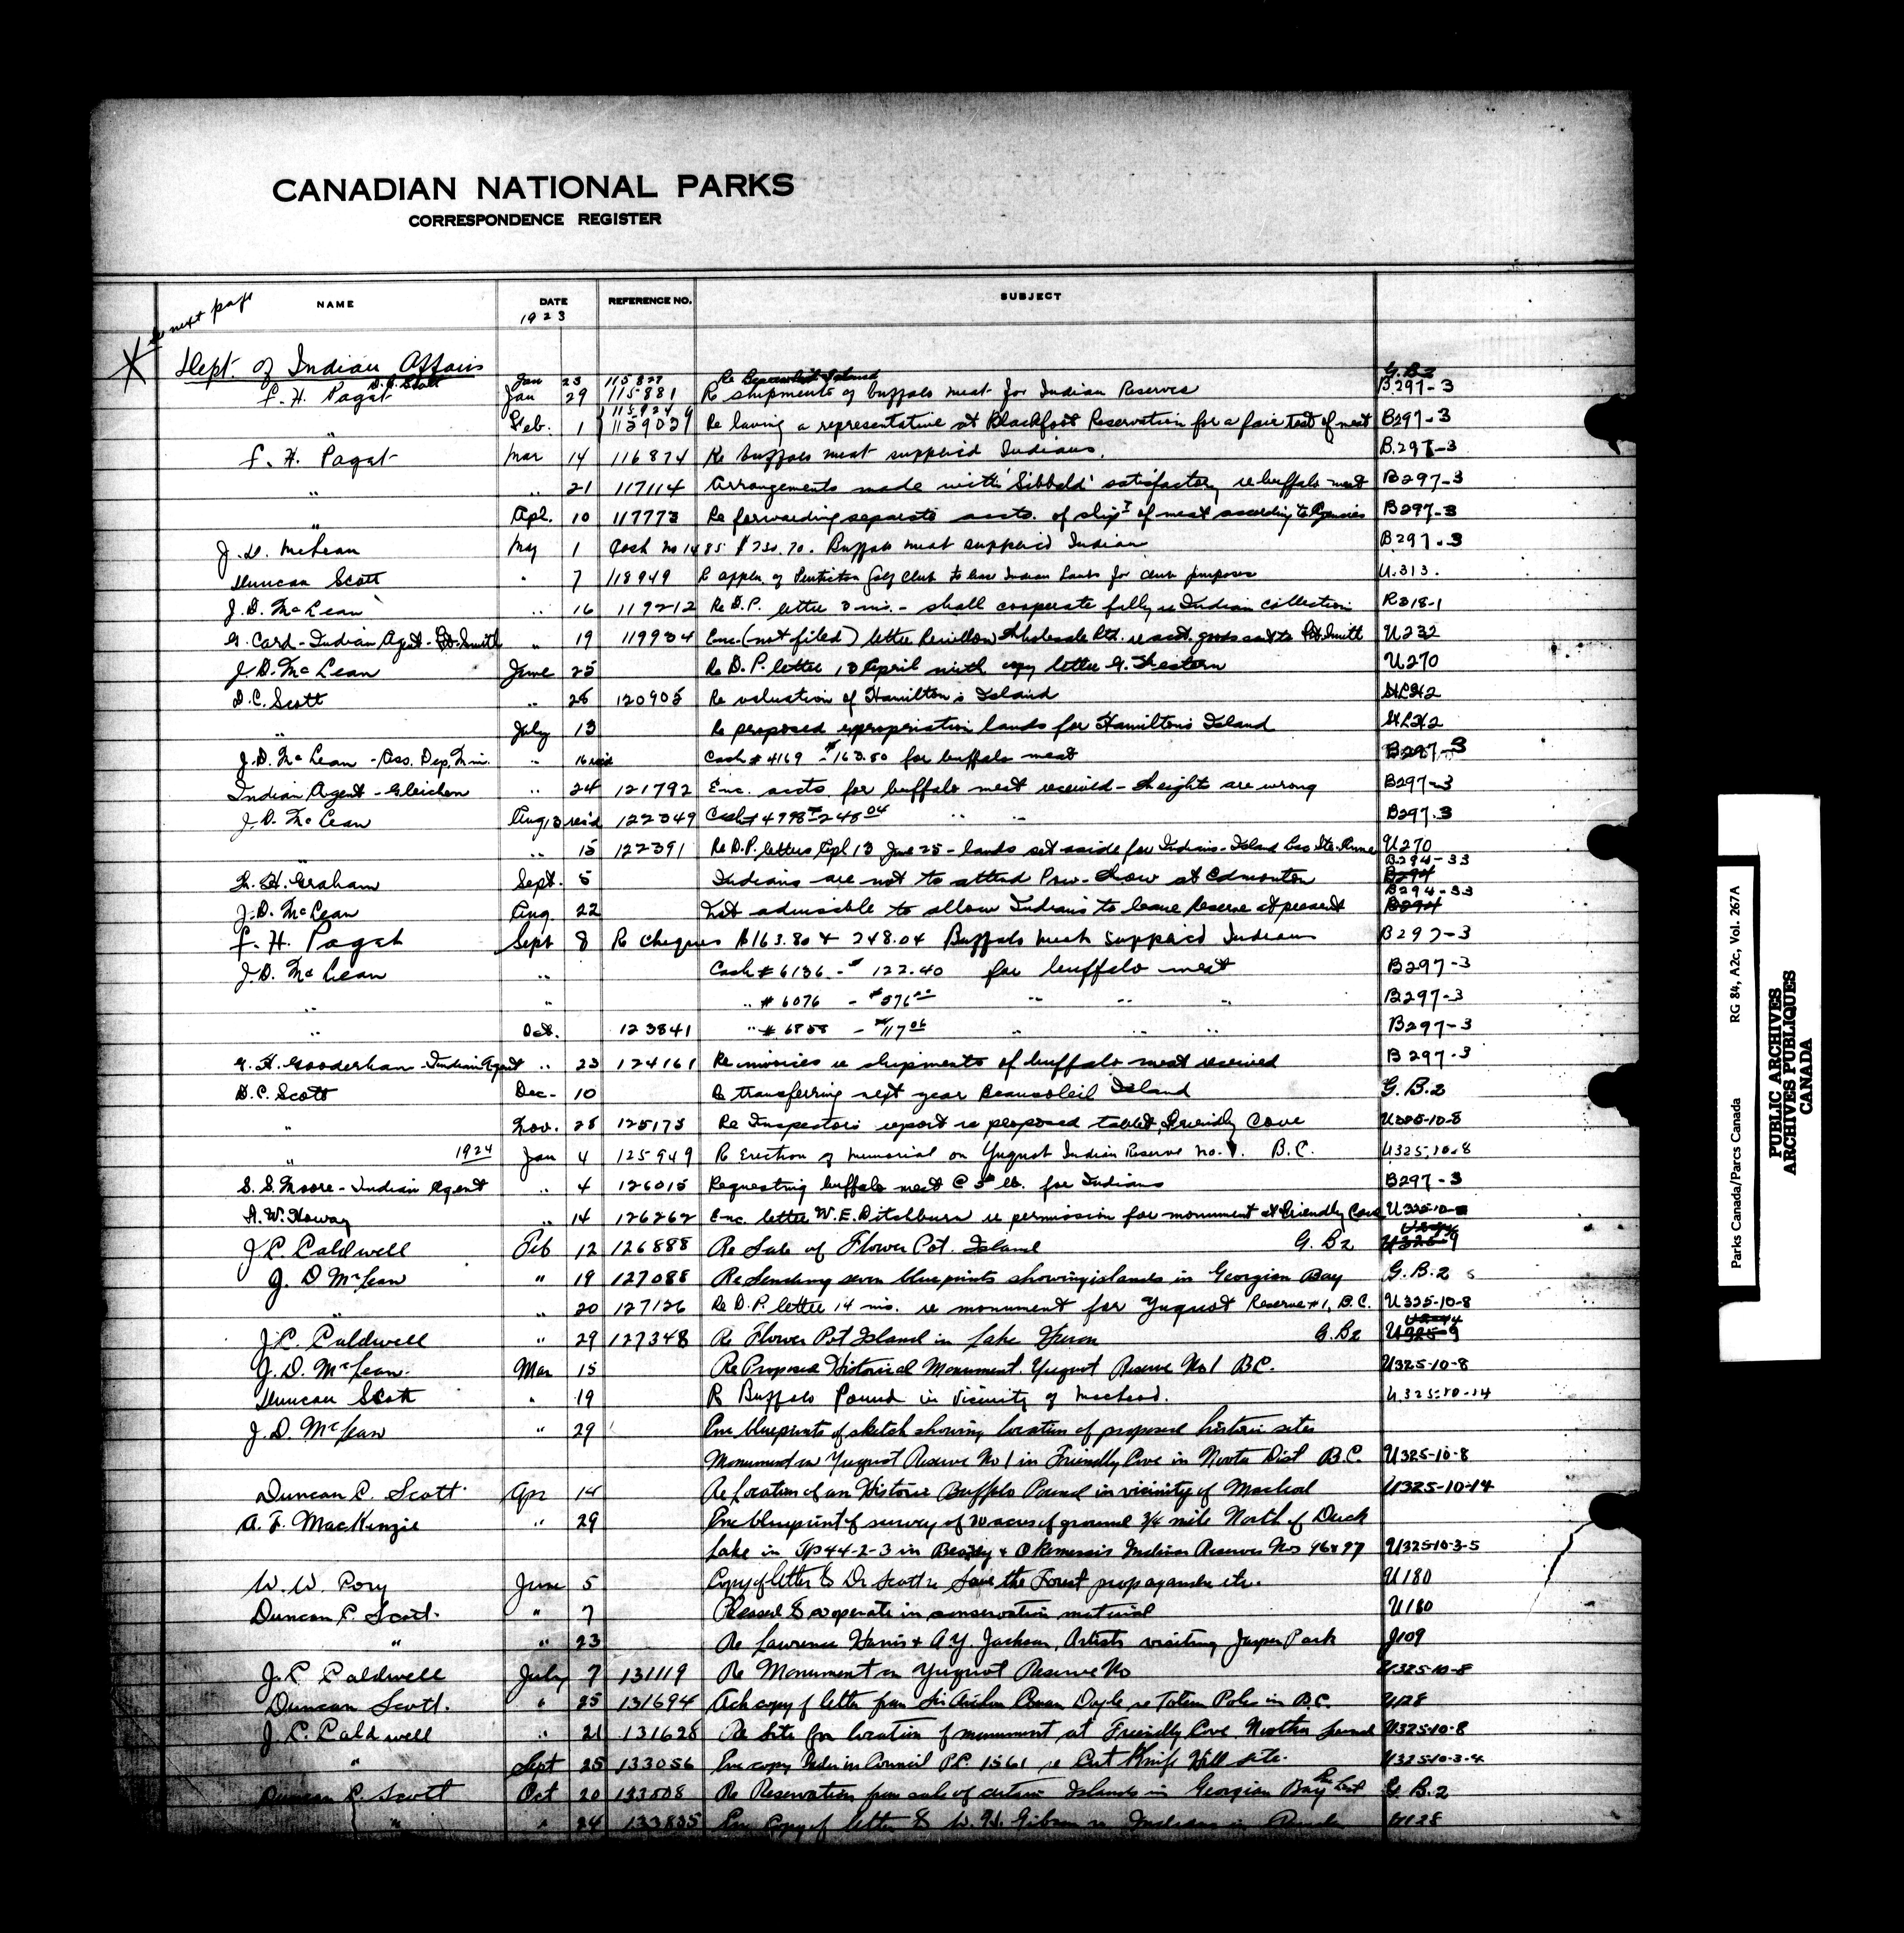 CANADIAN NATIONAL PARKS
CORRESPONDENCE REGISTER
NAME DATE REFERENCE NO. SUBJECT
1923
next page
Dept. of Indian Affairs
D.C. Scott Jan 23 115827 Re Beausoleil Island G.B2
F. H. Paget Jan 29 115881 Re shipments of buffalo meat for Indian Reserves B297-3
115924
" Feb. 1 Re having a representative at Blackfoot Reservation for a fair test of meat B297-3
F. H. Paget Mar 14 116874 Re buffalo meat supplied Indians. B.297-3
" " 21 117114 Arrangements made with 'Sibbald' satisfactory re buffalo meat B297-3
" Apl. 10 117773 Re forwarding separate accts. of shipt of meat according to Agencies B297-3
J. D. McLean May 1 Cash no 1485 $730.70. Buffalo meat supplied Indian B297-3
Duncan Scott " 7 118949 Re appln of Penticton Golf Club to lease Indian Lands for club purposes U.313.
J. D. McLean " 16 119212 Re D.P. letter 3 ins. - shall cooperate fully re Indian collection R318-1
G. Card - Indian Agent - Ft. Smith " 19 119934 Enc. (not filed) letter Revillon Wholesale Ltd. re acct. goods sent to Ft. Smith U232
J. D. McLean June 25 Re D.P. letter 13 April with copy letter G. U270
D. C. Scott " 26 120905 Re valuation of Hamilton's Island
" July 13 Re proposed expropriation lands for Hamilton's Island
J. D. McLean - Ass. Dep. Min. " 16 rec'd Cash # 4169 - $163.80 for buffalo meat B297-3
Indian Agent - Gleichen " 24 121792 Enc. accts. for buffalo meat received - weights are wrong B297-3
J. D. McLean Aug 13 rec'd 122349 Cash # 4798 - $248.04 " " B297-3
" " 15 122391 Re D.P. letters Apl 13 June 25 - lands set aside for Indians - Island Lac Ste. Anne U270
B294-33
Graham Sept. 5 Indians are not to attend Pow-Wow at Edmonton B294
B294-33
J. D. McLean Aug. 22 Not advisable to allow Indians to leave Reserve at present B294
F. H. Paget Sept 8 Re cheques $163.80 & 248.04 Buffalo meat supplied Indians B297-3
J. D. McLean " Cash # 6136 - $122.40 for buffalo meat B297-3
" " " # 6076 - $376.00 " " " B297-3
" Oct. 123841 " # 6858 - $117.06 " " " B297-3
G. H. Gooderham - Indian Agent " 23 124161 Re invoices re shipments of buffalo meat received B297-3
D. C. Scott Dec- 10 Re transferring next year Beausoleil Island G.B.2
" Nov. 28 125173 Re Inspector's report re proposed tablet, Friendly Cove U325-10-8
" 1924 Jan 4 125949 Re Erection of Memorial on Yuquot Indian Reserve No. 1. B.C. U325-10-8
S. S. Moore - Indian Agent " 4 126015 Requesting buffalo meat @ 5¢ lb. for Indians B297-3
H. W. Howay " 14 126262 Enc. letter W. E. Ditchburn re permission for monument at Friendly Cove U325-10-8
J. C. Caldwell Feb 12 126888 Re Sale of Flower Pot Island G.B2 U325-9
J. D McLean " 19 127088 Re Sending seven blueprints showing islands in Georgian Bay G.B.2
" " 20 127126 Re D.P. letter 14 ins. re monument for Yuquot Reserve #1, B.C. U325-10-8
J. C. Caldwell " 29 127348 Re Flower Pot Island in Lake Huron G.B2 U325-9
J. D. McLean. Mar 15 Re Proposed Historical Monument. Yuquot Reserve No 1 B.C. U325-10-8
Duncan Scott " 19 Re Buffalo Pound in Vicinity of Macleod. U.325-10-14
J. D. McLean " 29 Enc blueprints of sketch showing location of proposed historic sites
Monument on Yuquot Reserve No 1 in Friendly Cove in Nootka Dist B.C. U325-10-8
Duncan C. Scott. Apr 14 Re Location of an Historic Buffalo Pound in vicinity of Macleod U325-10-14
A. F. MacKenzie " 29 Enc blueprint of survey of 20 acres of ground 3/4 mile North of Duck
Lake in Tp 44-2-3 in Beardy & Okemasis Indian Reserves Nos 96 & 97 U325-10-3-5
W. W. Cory June 5 Copy of letter to Dr Scott re Save the Forest propaganda etc. U180
Duncan C. Scott. " 7 Pleased to cooperate in conservation material U180
" " 23 Re Lawrence Harris & A.Y. Jackson, Artists visiting Jasper Park J109
J. C Caldwell July 7 131119 Re Monument on Yuquot Reserve No U325-10-8
Duncan Scott. " 25 131694 Ack copy of letter from Sir Arthur Conan Doyle re Totem Poles in B.C. U128
J. C. Caldwell " 21 131628 Re Site for location of monument at Friendly Cove. Nootka Sound U325-10-8
" Sept 25 133056 Enc copy Order in Council P.C. 1561 re Cut Knife Hill site. U325-10-3-4
Duncan C. Scott Oct 20 133808 Re Reservation from sale of certain Islands in Georgian Bay G B.2
" " 24 133835 Enc Copy of letter to W. H. Gibson re Indians in
RG 84, A2c, Vol. 267A
Parks Canada/Parcs Canada
PUBLIC ARCHIVES
ARCHIVES PUBLIQUES
CANADA